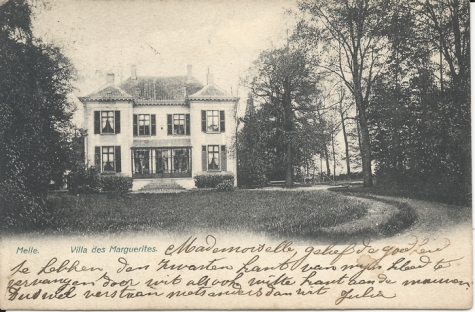 Melle. Villa des Marguerites.
Mademoiselle, gehef de goedheid
te hebben den zwarten kant van mijn kleed te
vervangen door wit alsook witte kant aan de mauwen
verstaan niets anders dan wit Julia